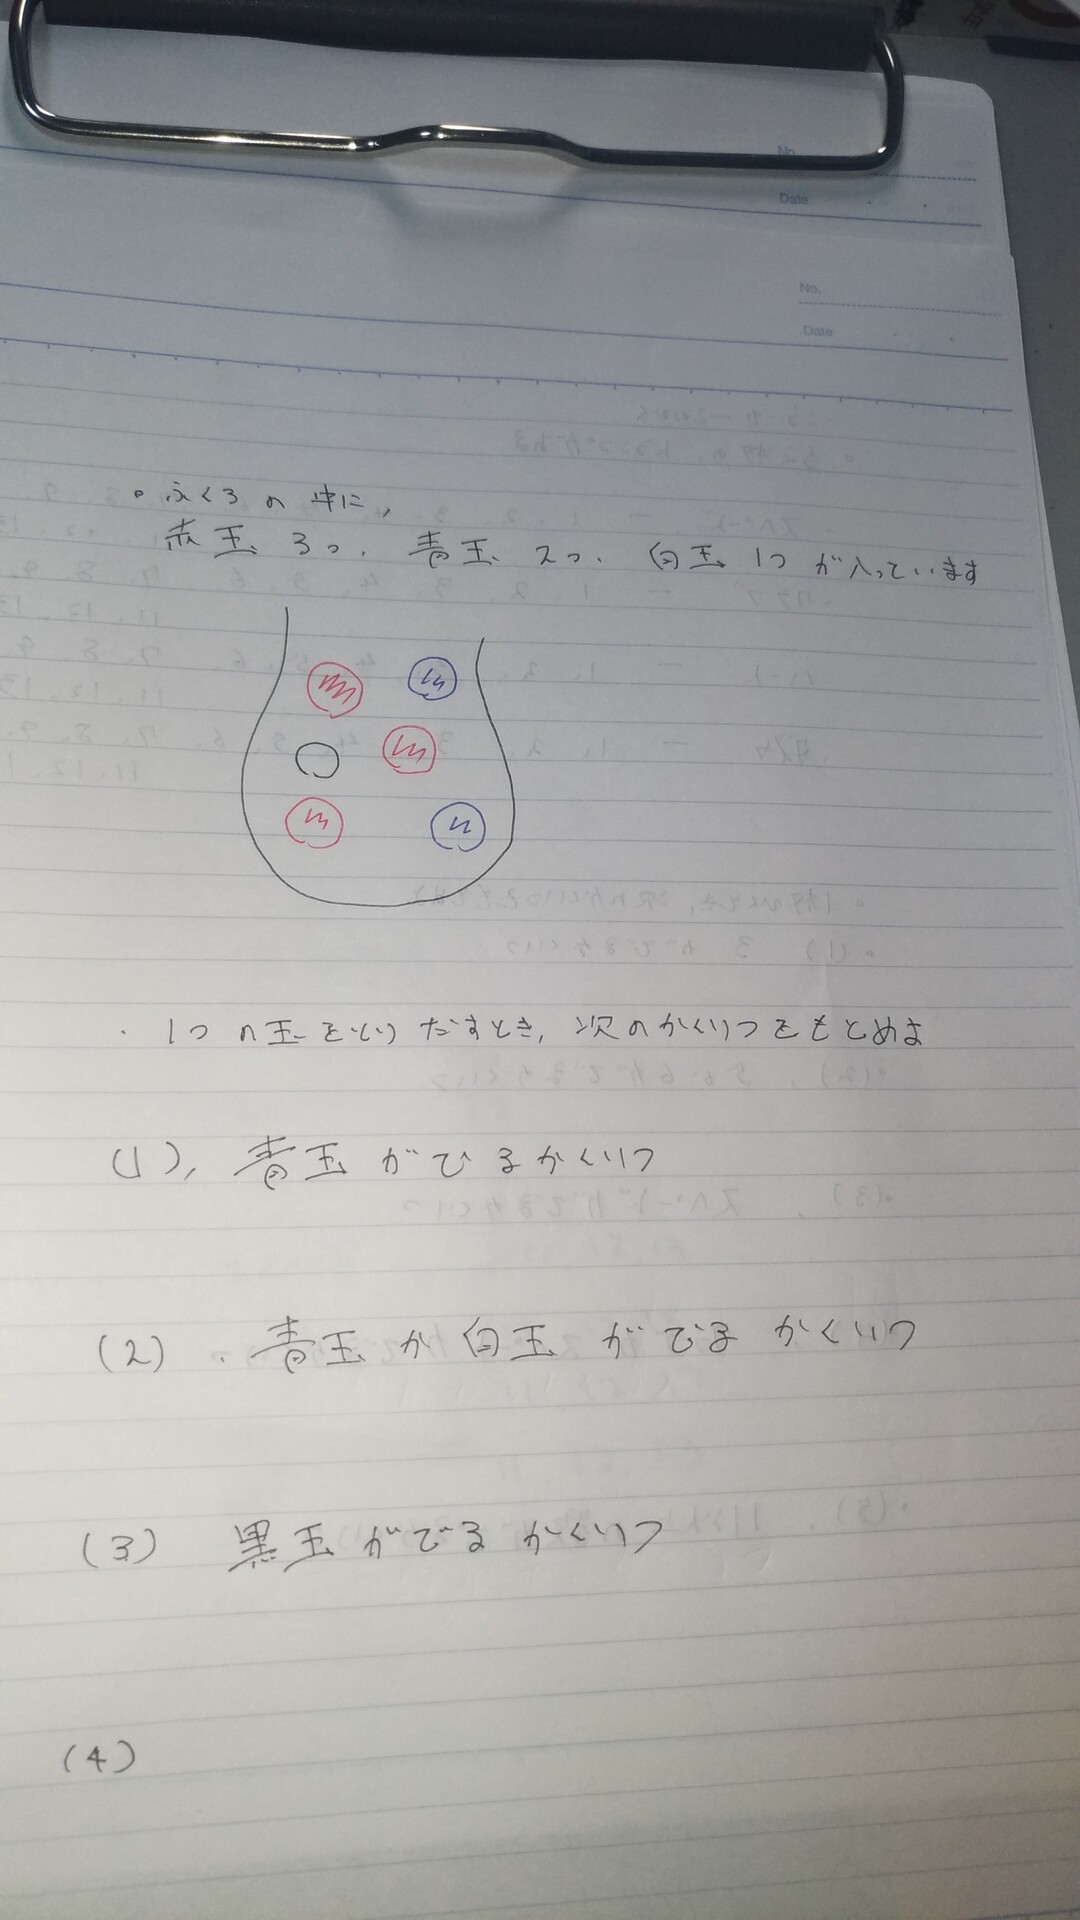 No.
Date
No.
Date
・ふくろの中に,
赤玉 3つ、青玉 2つ、白玉 1つ が入っています
・1つの玉をとりだすとき,次のかくりつをもとめよ
(1)、青玉がでるかくりつ
(2)、青玉か白玉がでるかくりつ
(3) 黒玉がでるかくりつ
(4)